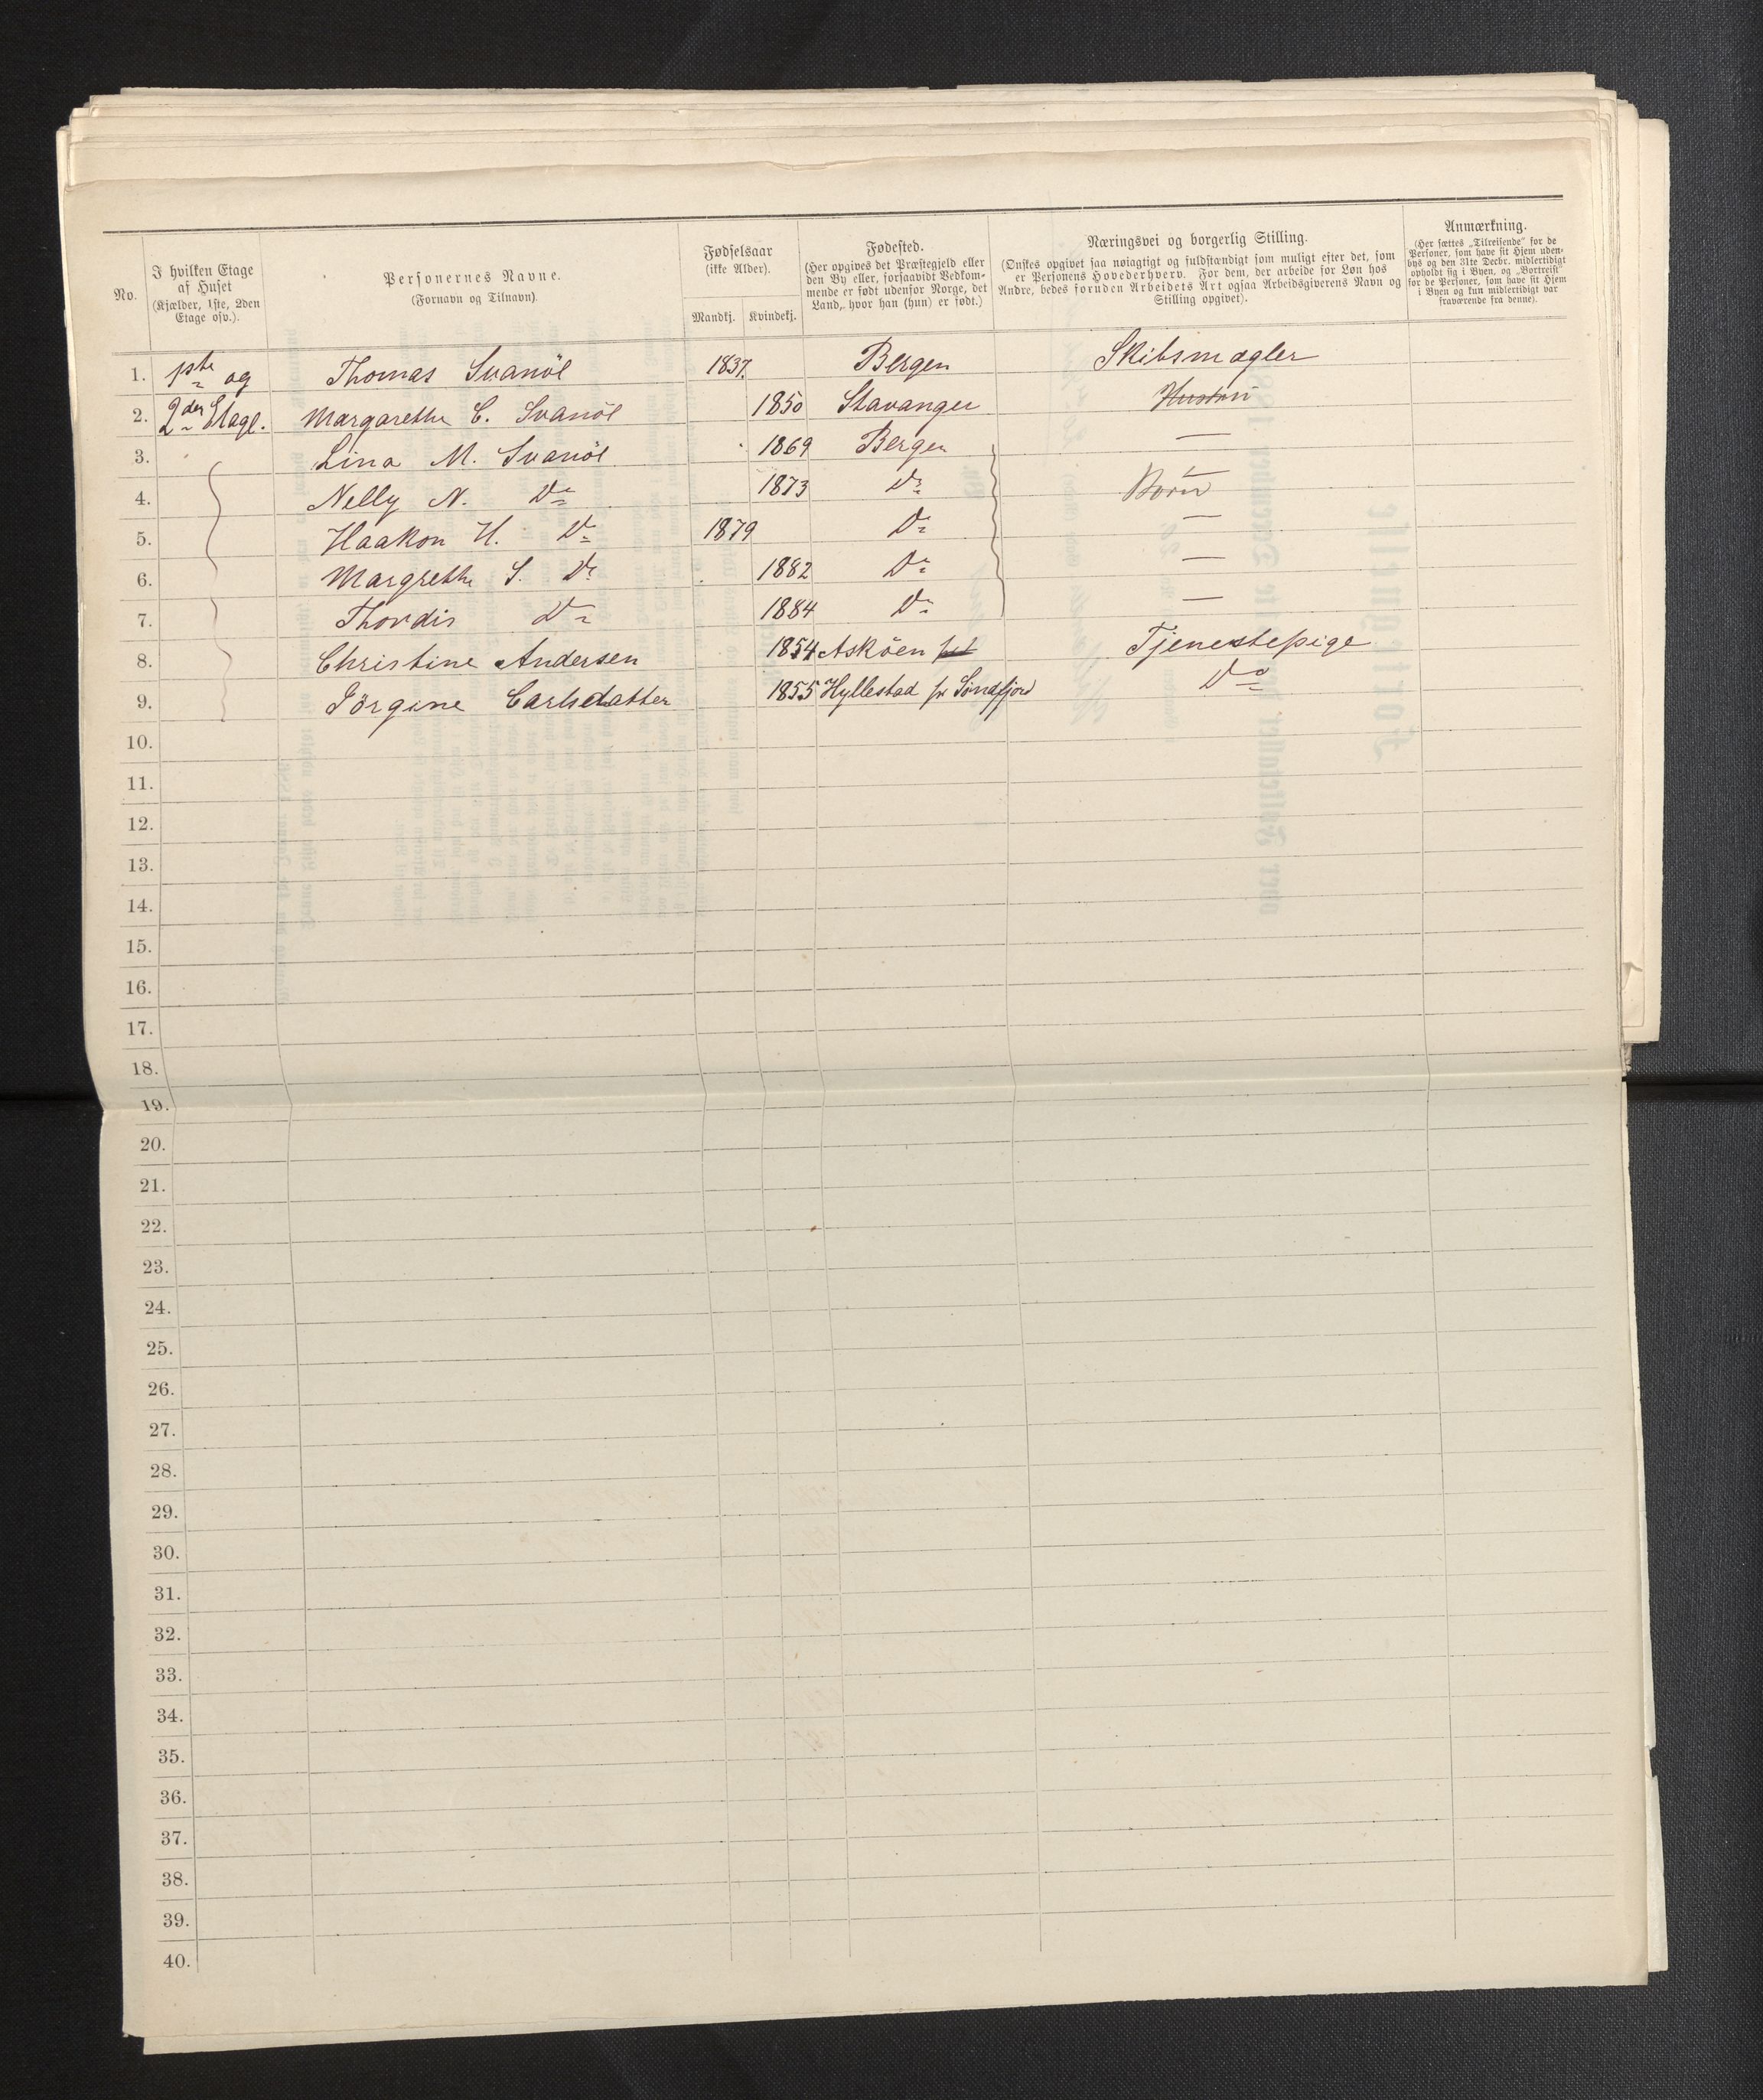 No.
I hvilken Etage
af Huset
(Kjælder, 1ste, 2den
Etage osv.).
Personernes Navne.
(Fornavn og Tilnavn).
Fødselsaar
(ikke Alder).
Mandkj. Kvindekj.
Fødested.
(Her opgives det Præstegjeld eller
den By eller, forsaavidt Vedkom-
mende er født udenfor Norge, det
Land, hvor han (hun) er født.)
Næringsvei og borgerlig Stilling.
(Ønskes opgivet saa nøiagtigt og fuldstændigt som muligt efter det, som
er Personens Hovederhverv. For dem, der arbeide for Løn hos
Andre, bedes foruden Arbeidets Art ogsaa Arbeidsgiverens Navn og
Stilling opgivet).
Anmærkning.
(Her sættes „Tilreisende" for de
Personer, som have sit Hjem uden-
bys og den 31te Decbr. midlertidigt
opholdt sig i Byen, og „Bortreist"
for de Personer, som have sit Hjem
i Byen og kun midlertidigt var
fraværende fra denne).
1. 1ste og Thomas Svanöe 1837. Bergen Skibsmægler
2. 2den Etage. Margarethe C. Svanöe 1850 Stavanger Hustru
3. Lina M. Svanöe 1869 Bergen —
4. Nelly N. Do 1873 Do Børn
5. Haakon H. Do 1879 Do —
6. Margrethe S. Do 1882 Do —
7. Thordis Do 1884 Do —
8. Christine Andersen 1854 Asköen Tjenestepige
9. Jörgine Carlsdatter 1855 Hyllestad pr Söndfjord Do
10.
11.
12.
13.
14.
15.
16.
17.
18.
19.
20.
21.
22.
23.
24.
25.
26.
27.
28.
29.
30.
31.
32.
33.
34.
35.
36.
37.
38.
39.
40.